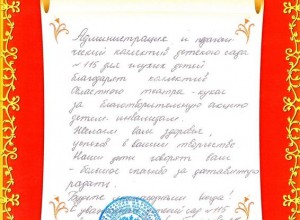 Администрация и педаго-
гический коллектив детского сада
№ 115 для глухих детей
благодарят коллектив
Областного театра - кукол
за благотворительную акцию
детям-инвалидам.
Желаем Вам здоровья,
успехов в вашем творчестве.
Наши дети говорят Вам
- большое спасибо за доставленную
радость.
Будьте с нами всегда!
сад № 115